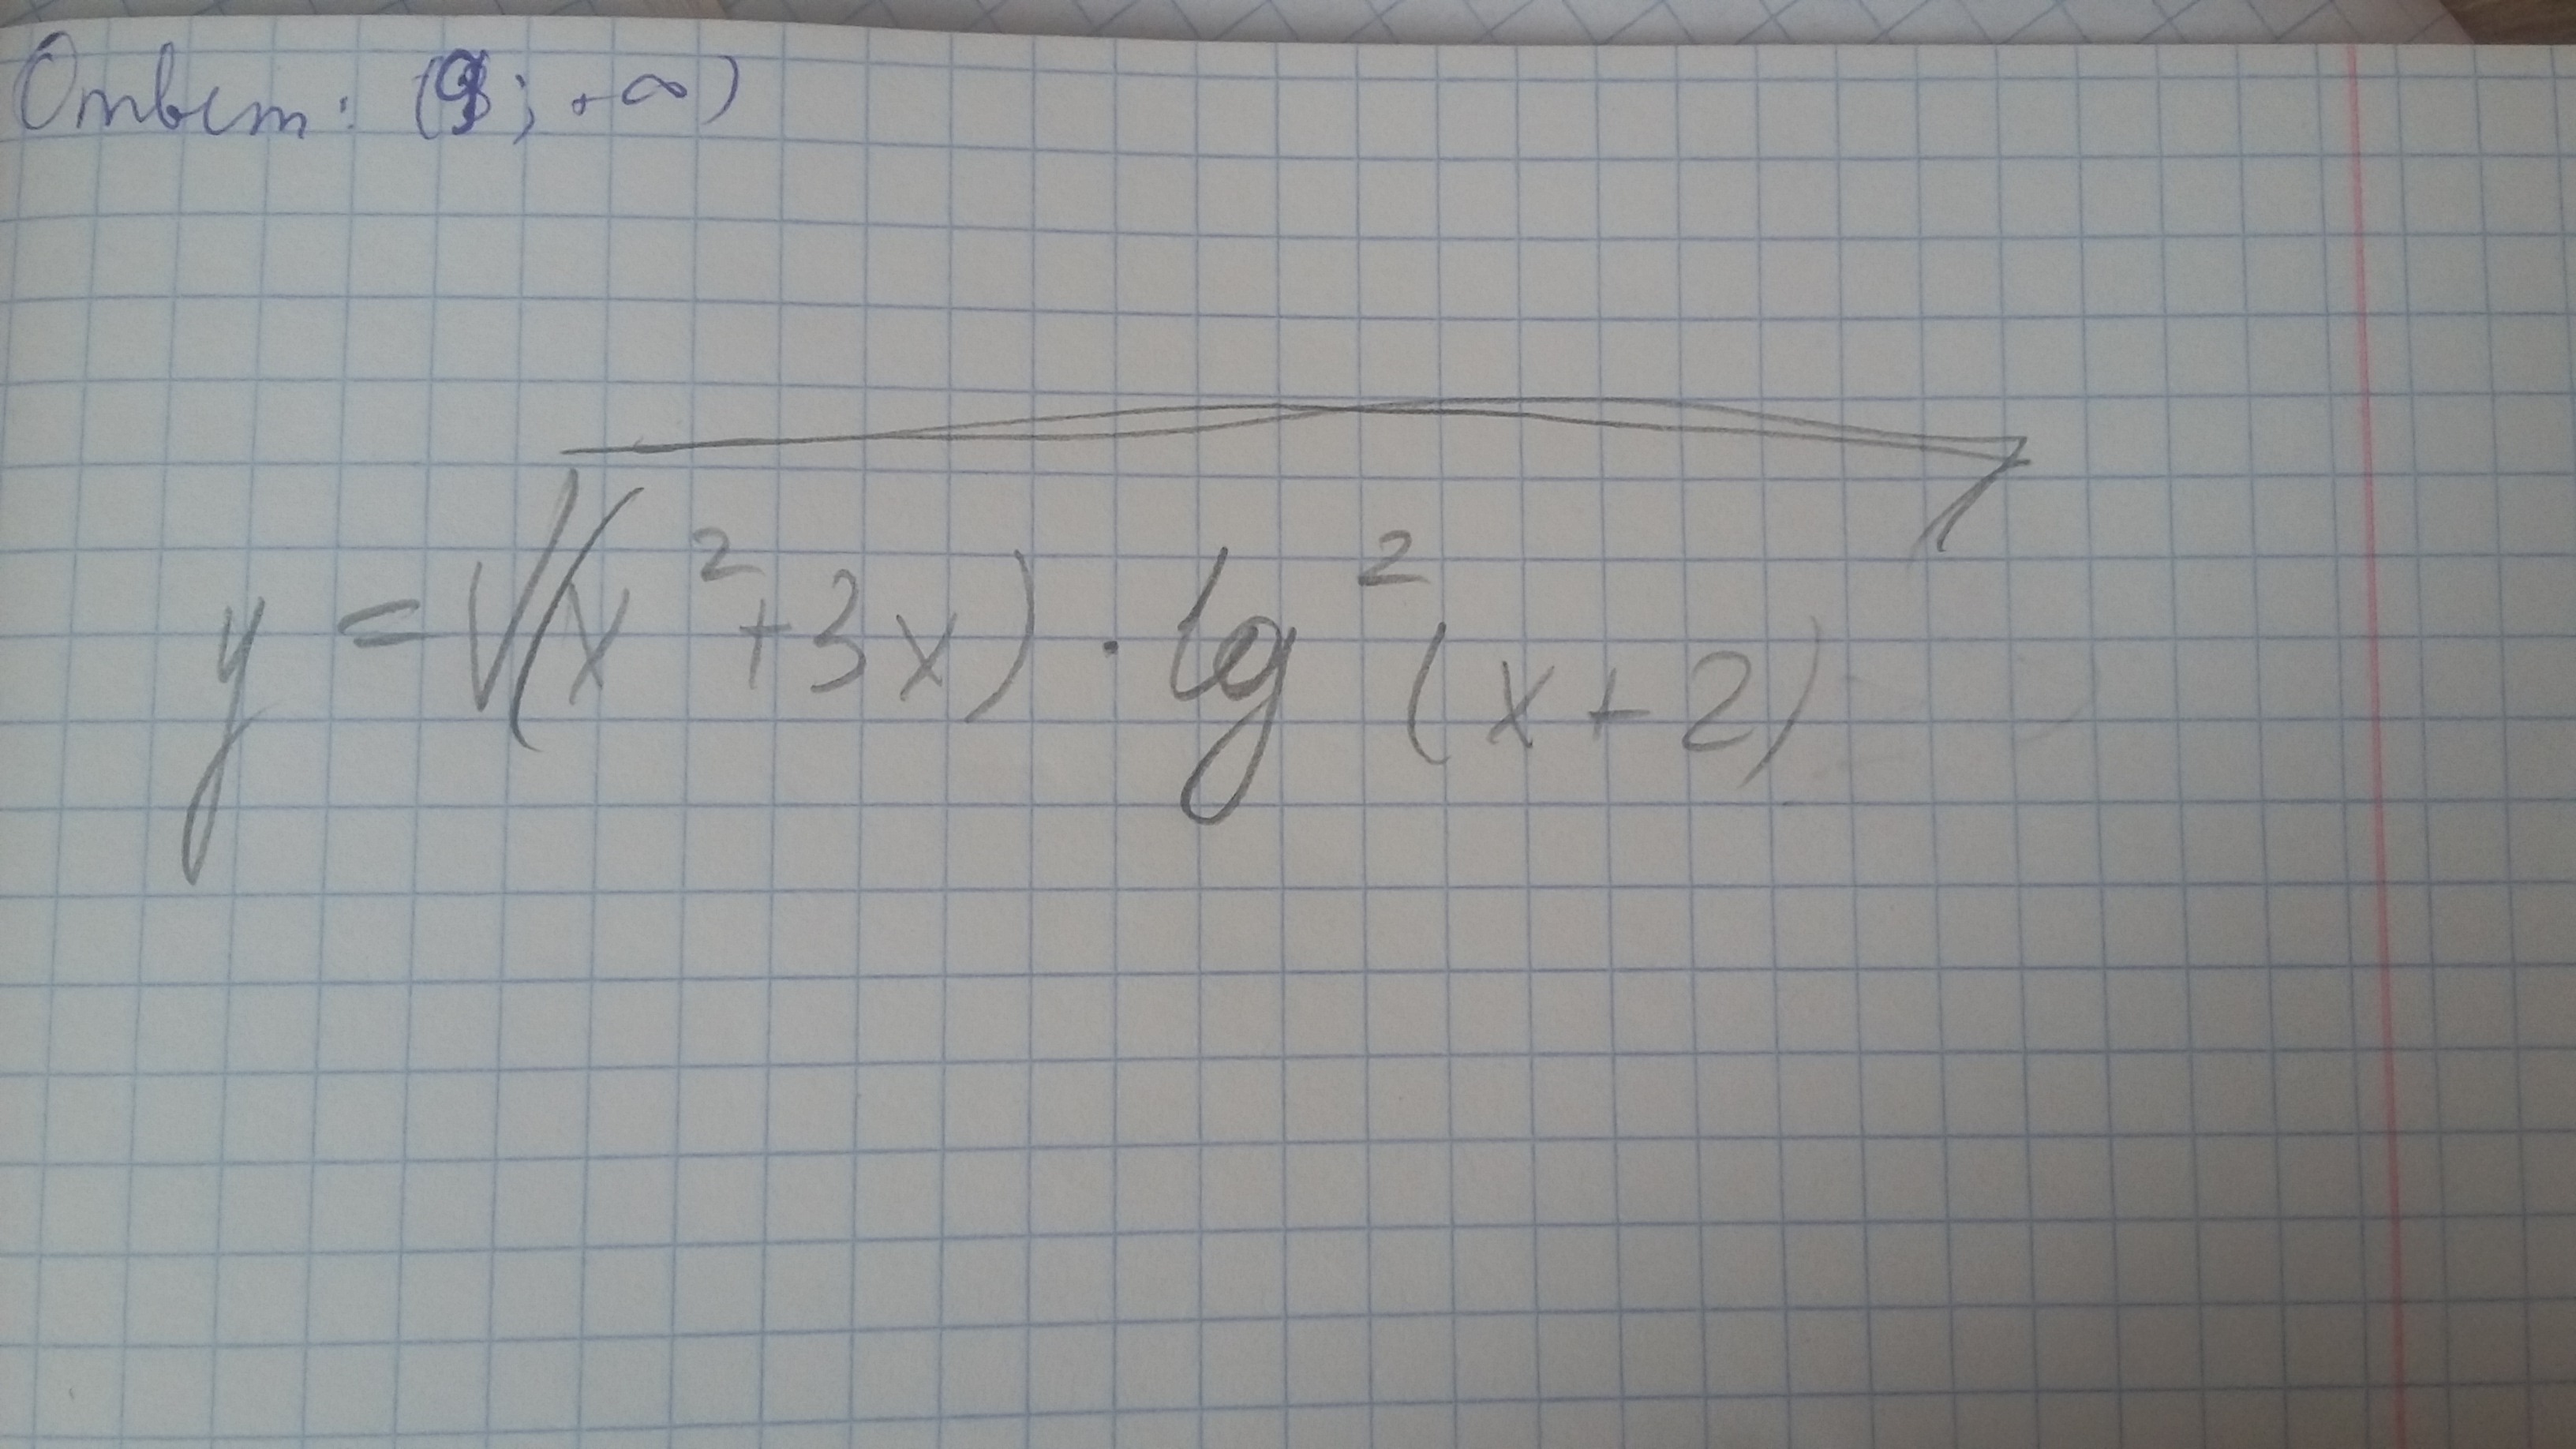 Ответ: (9; +∞)
y = √((x²+3x) · lg²(x+2))